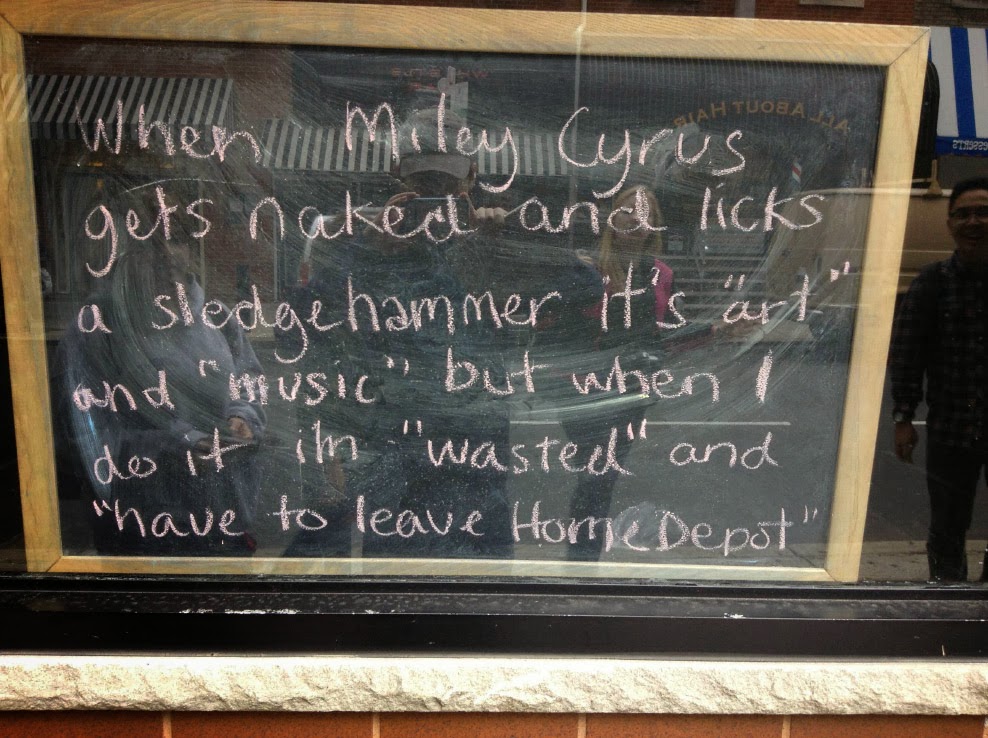 When Miley Cyrus
gets naked and licks
a sledgehammer it's "art"
and "music" but when I
do it i'm "wasted" and
"have to leave Home Depot"
ALL ABOUT HAIR